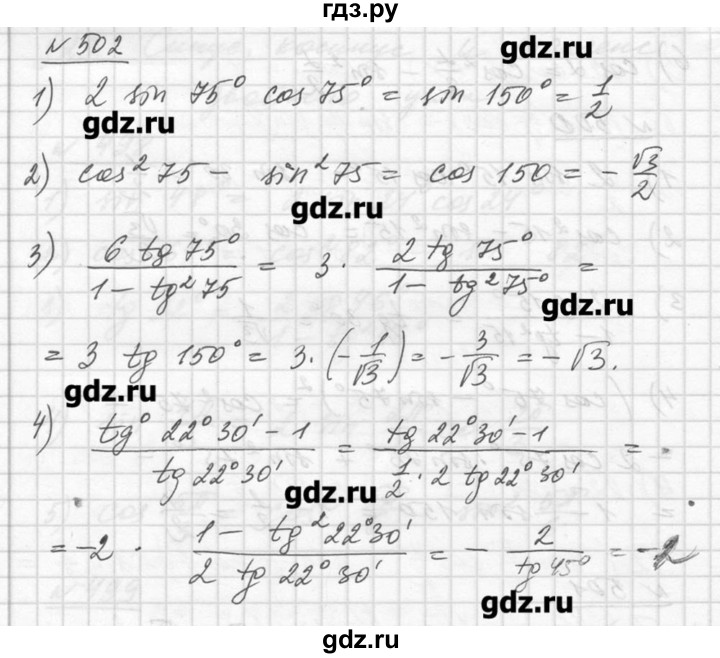 гдз.ру
№ 502
1) 2 sin 75° cos 75° = sin 150° = 1/2
gdz.ru
gdz.ru
2) cos² 75 - sin² 75 = cos 150 = - √3/2
gdz.ru
3) 6 tg 75° / 1 - tg² 75 = 3 · 2 tg 75° / 1 - tg² 75° =
gdz.ru
= 3 tg 150° = 3 · (- 1/√3) = - 3/√3 = - √3.
gdz.ru
4) tg° 22°30' - 1 / tg 22°30' = tg 22°30' - 1 / 1/2 · 2 tg 22°30' =
gdz.ru
= -2 · 1 - tg² 22°30' / 2 tg 22°30' = - 2 / tg 45° = -2
gdz.ru
gdz.ru